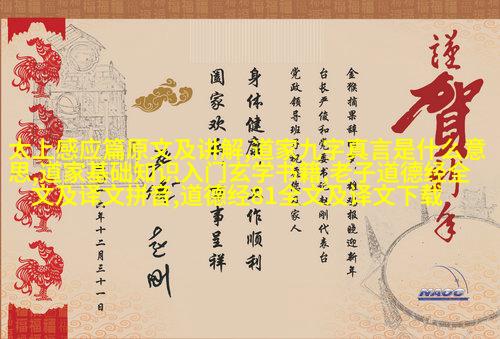 太上感应篇原文及讲解,道家九字真言是什么意
思,道家基础知识入门玄学书籍,老子道德经全
文及译文拼音,道德经81全文及译文下载
謹賀新年
金猴摘果辞 雄鸡报晓迎新年
台长严俊和党委书记赵刚代表台
党政领导班子祝福您和家人
身体健康 工作顺利
阖家欢乐 万事呈祥
赵刚
六年十二月三十一日
NAOC